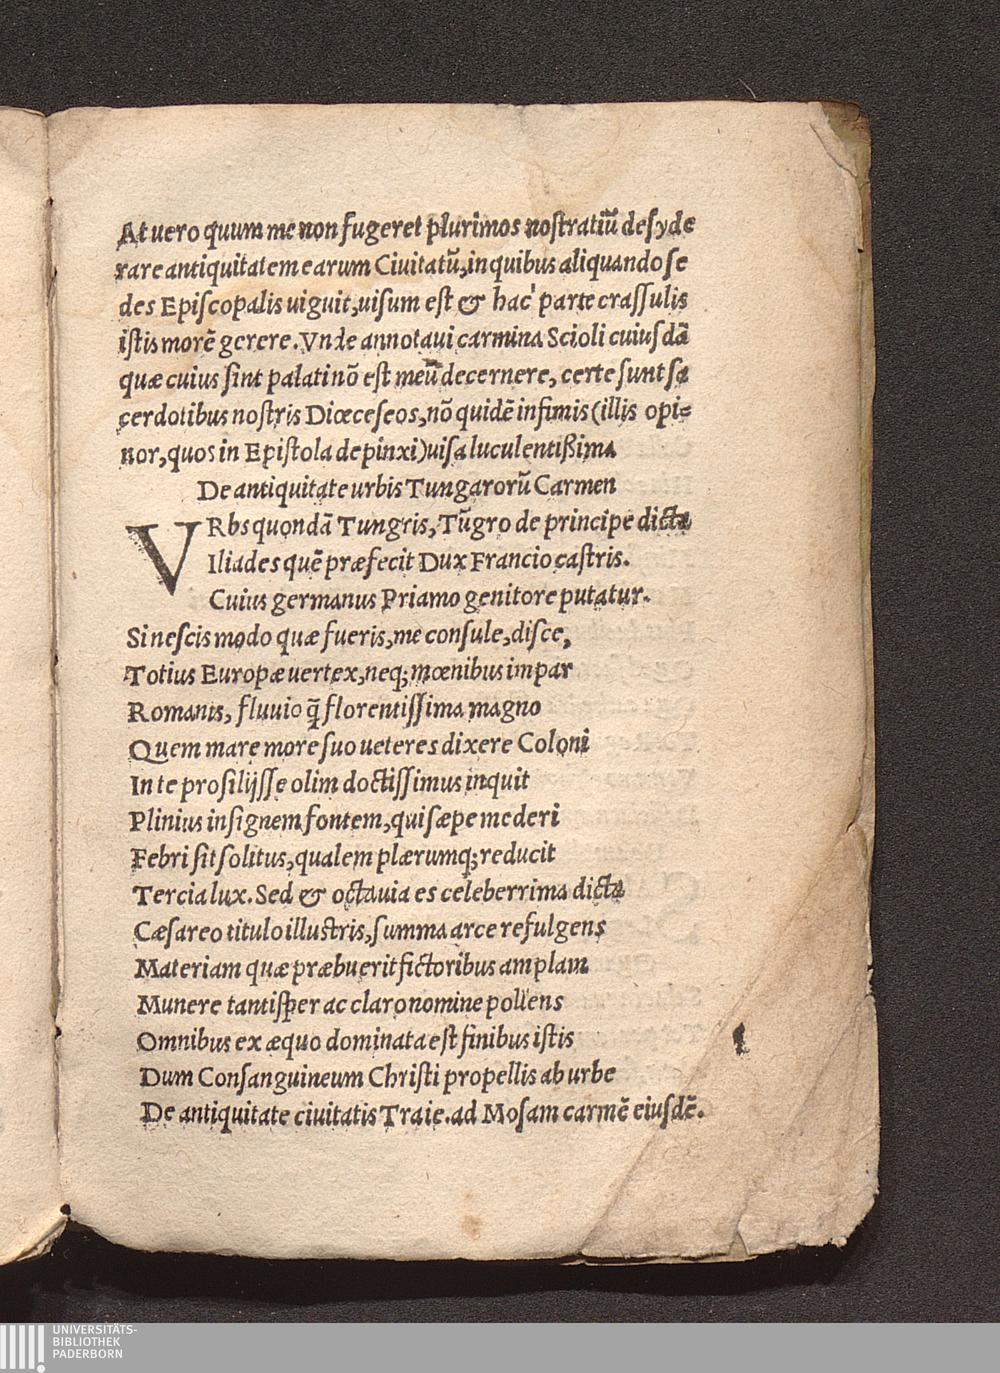 At uero quum me non fugeret plurimos nostratiū desyde
rare antiquitatem earum Ciuitatū, in quibus aliquando se
des Episcopalis uiguit, uisum est & hac parte crassulis
istis morē gerere. Vnde annotaui carmina Scioli cuiusdā
quæ cuius sint palati nō est meū decernere, certe sunt sa
cerdotibus nostris Diœceseos, nō quidē infimis (illis opi=
nor, quos in Epistola depinxi) uisa luculentißima
De antiquitate urbis Tungarorū Carmen
VRbs quondā Tungris, Tūgro de principe dicta
Iliades quē præfecit Dux Francio castris.
Cuius germanus Priamo genitore putatur.
Si nescis modo quæ fueris, me consule, disce,
Totius Europæ uertex, neq; mœnibus impar
Romanis, fluuio q̄ florentissima magno
Quem mare more suo ueteres dixere Coloni
In te prosilijsse olim doctissimus inquit
Plinius insignem fontem, qui sæpe mederi
Febri sit solitus, qualem plærumq; reducit
Tercia lux. Sed & octauia es celeberrima dicta
Cæsareo titulo illustris, summa arce refulgens
Materiam quæ præbuerit fictoribus amplam
Munere tantisper ac claro nomine pollens
Omnibus ex æquo dominata est finibus istis
Dum Consanguineum Christi propellis ab urbe
De antiquitate ciuitatis Traie. ad Mosam carmē eiusdē.
UNIVERSITÄTS-
BIBLIOTHEK
PADERBORN